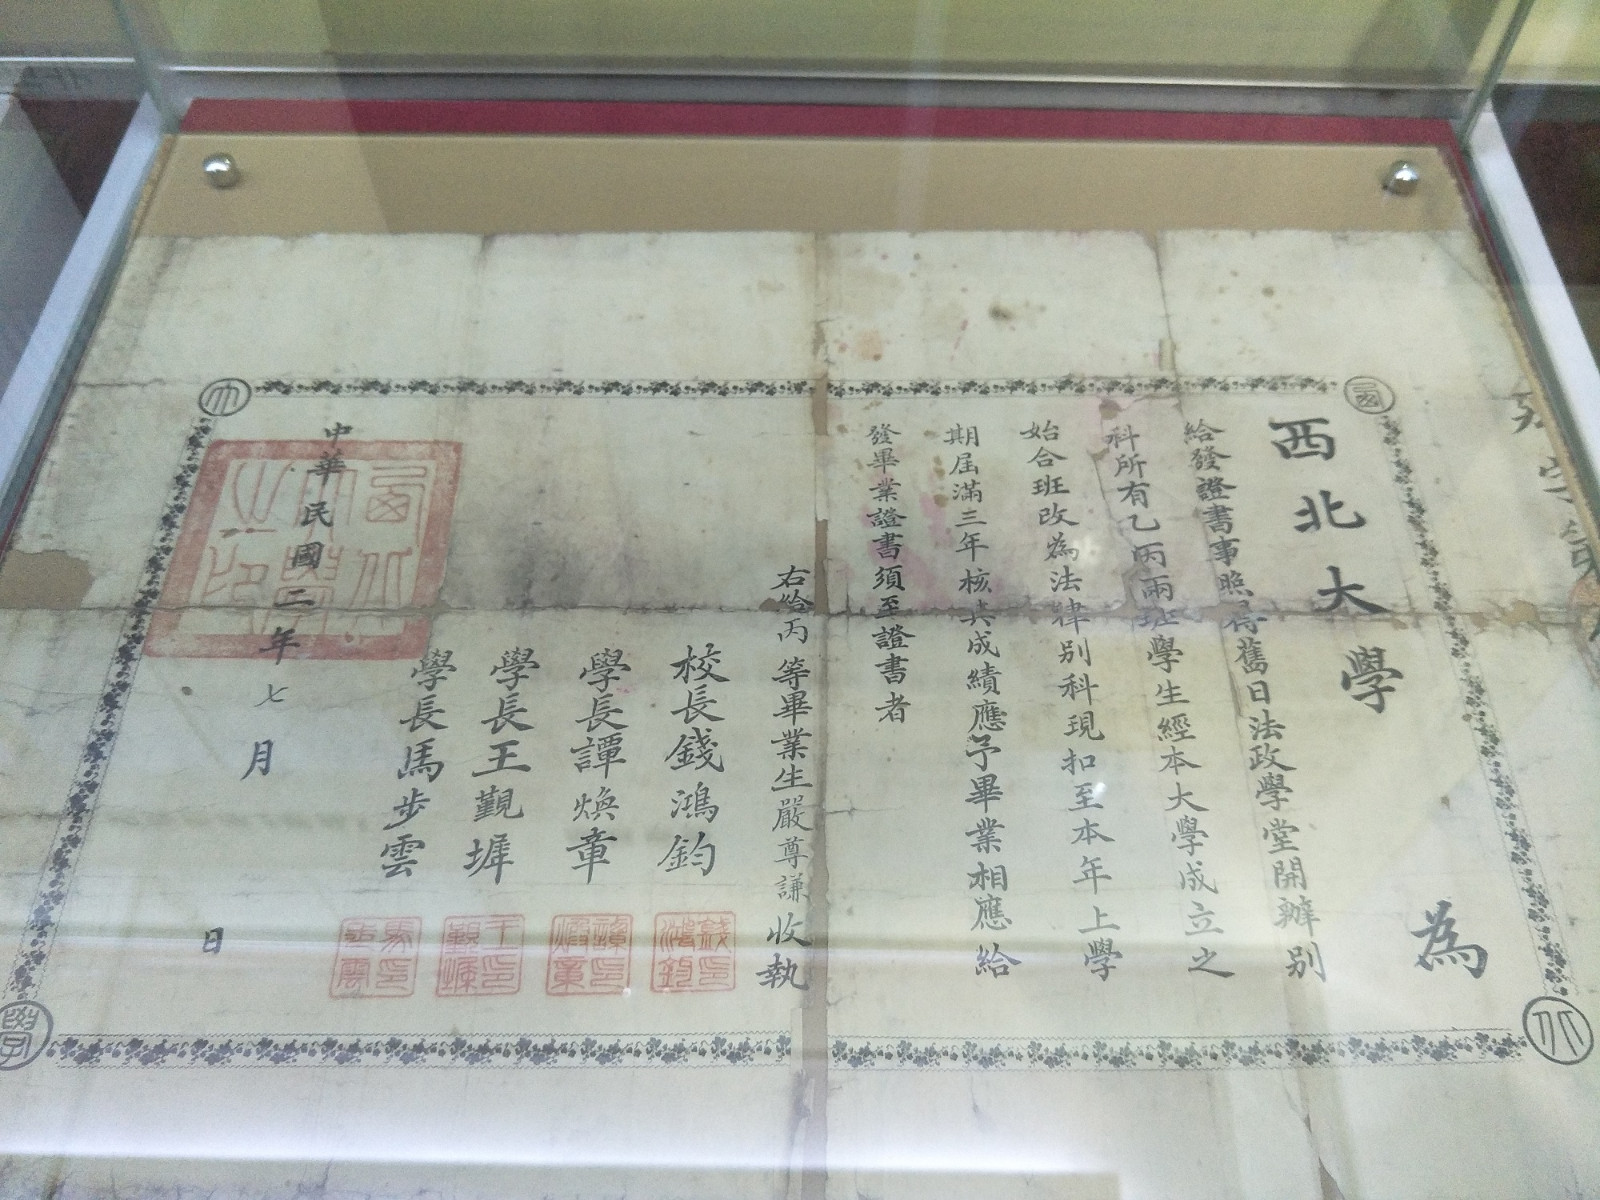 西北大學 為
給發證書事照得舊日法政學堂開辦別
科所有乙丙兩班學生經本大學成立之
始合班改為法律別科現扣至本年上學
期屆滿三年核其成績應予畢業相應給
發畢業證書須至證書者
右給丙等畢業生嚴尊謙收執
校長錢鴻鈞
學長譚煥章
學長王觀墀
學長馬步雲
中華民國二年七月 日
西北大學之印
錢鴻鈞印
譚煥章印
王觀墀印
馬步雲印
西
北
大
學